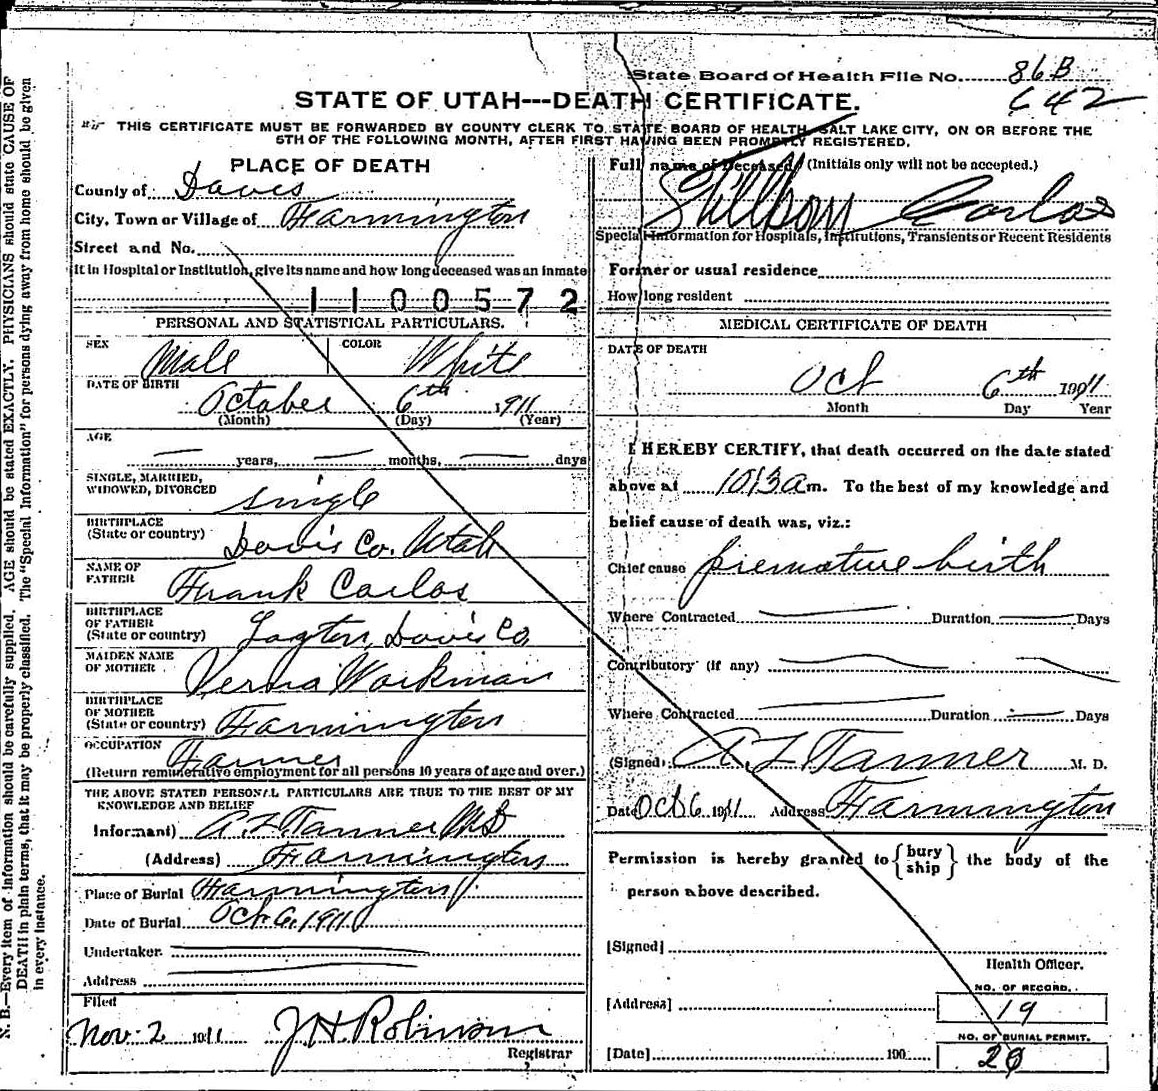 State Board of Health File No. 86B
642
STATE OF UTAH---DEATH CERTIFICATE.
THIS CERTIFICATE MUST BE FORWARDED BY COUNTY CLERK TO STATE BOARD OF HEALTH, SALT LAKE CITY, ON OR BEFORE THE
5TH OF THE FOLLOWING MONTH, AFTER FIRST HAVING BEEN PROMPTLY REGISTERED.
PLACE OF DEATH
County of Davis
City, Town or Village of Farmington
Street and No.
If in Hospital or Institution, give its name and how long deceased was an inmate
1100572
PERSONAL AND STATISTICAL PARTICULARS.
SEX Male COLOR White
DATE OF BIRTH
October 6th 1911
(Month) (Day) (Year)
AGE
— years, — months, — days
SINGLE, MARRIED,
WIDOWED, DIVORCED single
BIRTHPLACE
(State or country) Davis Co. Utah
NAME OF
FATHER Frank Carlos
BIRTHPLACE
OF FATHER
(State or country) Layton, Davis Co.
MAIDEN NAME
OF MOTHER Verna Workman
BIRTHPLACE
OF MOTHER
(State or country) Farmington
OCCUPATION Farmer
(Return remunerative employment for all persons 10 years of age and over.)
THE ABOVE STATED PERSONAL PARTICULARS ARE TRUE TO THE BEST OF MY
KNOWLEDGE AND BELIEF
Informant) A. Z. Tanner MD
(Address) Farmington
Place of Burial Farmington
Date of Burial Oct. 6, 1911
Undertaker
Address
Filed
Nov. 2 1911 J H Robinson
Registrar
Full name of Deceased (Initials only will not be accepted.)
Stillborn Carlos
Special Information for Hospitals, Institutions, Transients or Recent Residents
Former or usual residence
How long resident
MEDICAL CERTIFICATE OF DEATH
DATE OF DEATH
Oct 6th 1911
Month Day Year
I HEREBY CERTIFY, that death occurred on the date stated
above at 1013 a m. To the best of my knowledge and
belief cause of death was, viz.:
Chief cause premature birth
Where Contracted — Duration — Days
Contributory (if any)
Where Contracted — Duration — Days
(Signed) A Z Tanner M. D.
Date Oct 6 1911 Address Farmington
Permission is hereby granted to { bury
ship } the body of the
person above described.
[Signed]
Health Officer.
[Address]
NO. OF RECORD.
19
NO. OF BURIAL PERMIT.
20
[Date] 190
N. B.—Every item of information should be carefully supplied. AGE should be stated EXACTLY. PHYSICIANS should state CAUSE OF
DEATH in plain terms, that it may be properly classified. The "Special Information" for persons dying away from home should be given
in every instance.